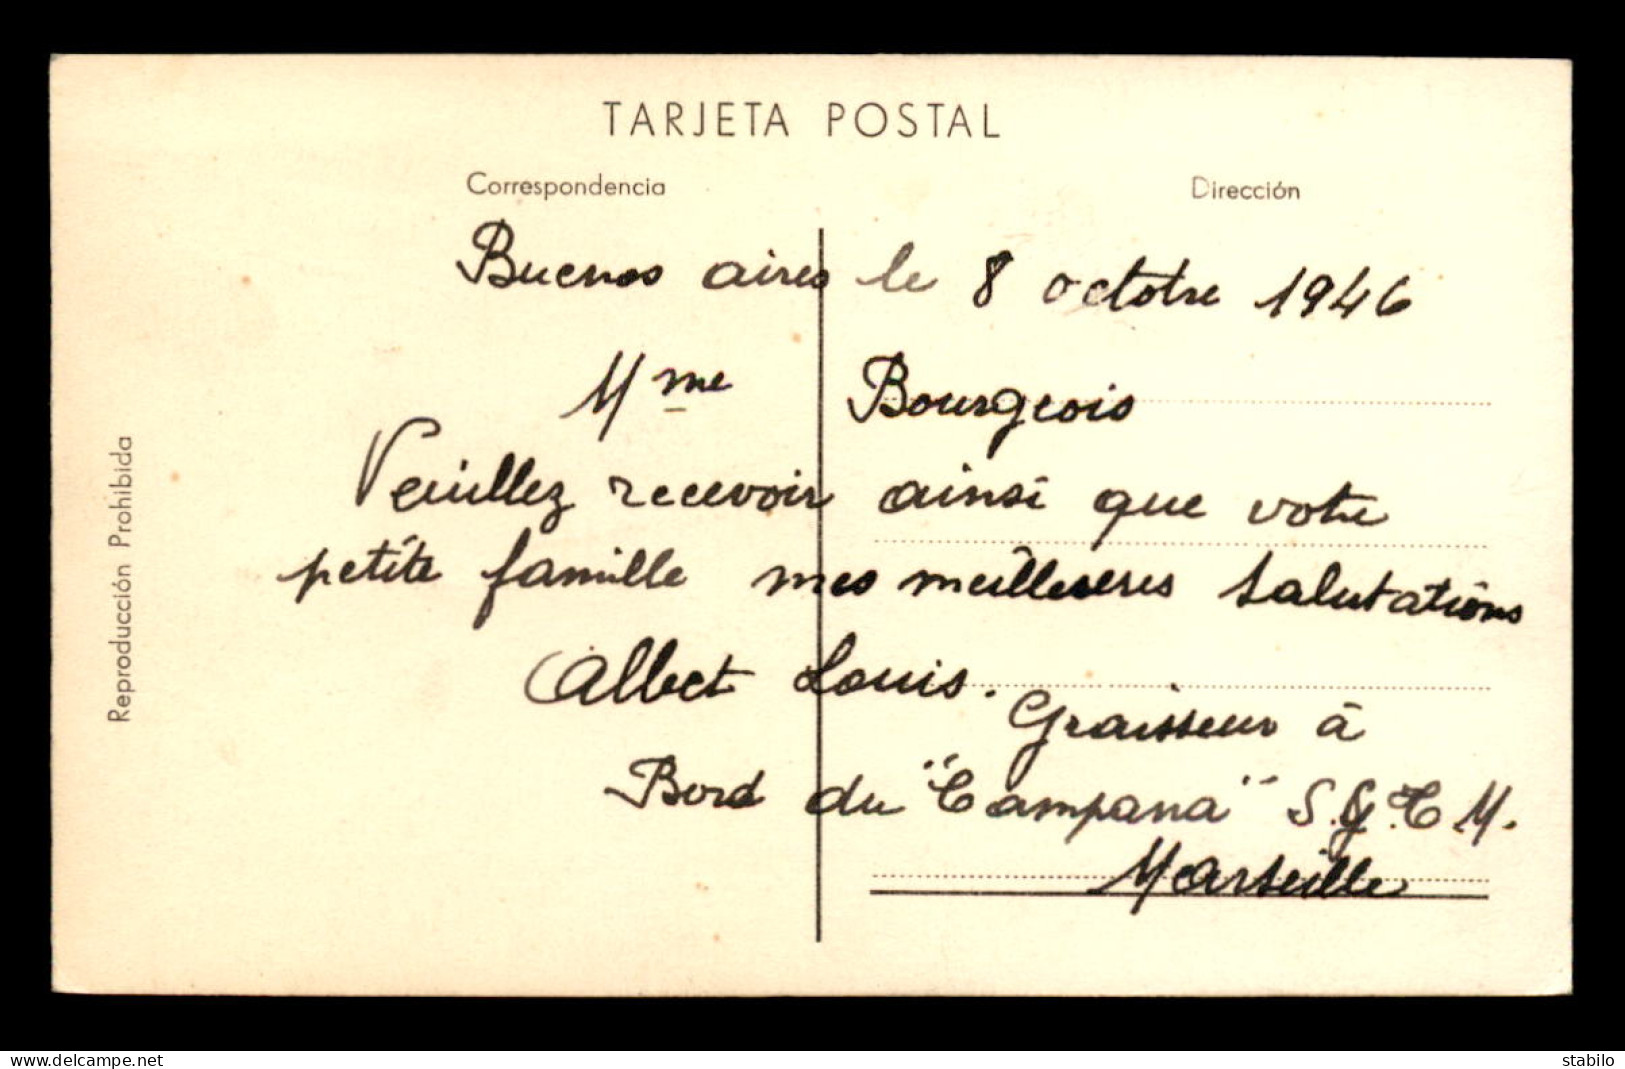 TARJETA POSTAL
Correspondencia
Dirección
Buenos aires le 8 octobre 1946
Mme Bourgeois
Veuillez recevoir ainsi que votre
petite famille mes meilleures salutations
Albet Louis.
Graisseur à
Bord du "Campana" S.G.T.M.
Marseille
Reproducción Prohibida
www.delcampe.net
stabilo